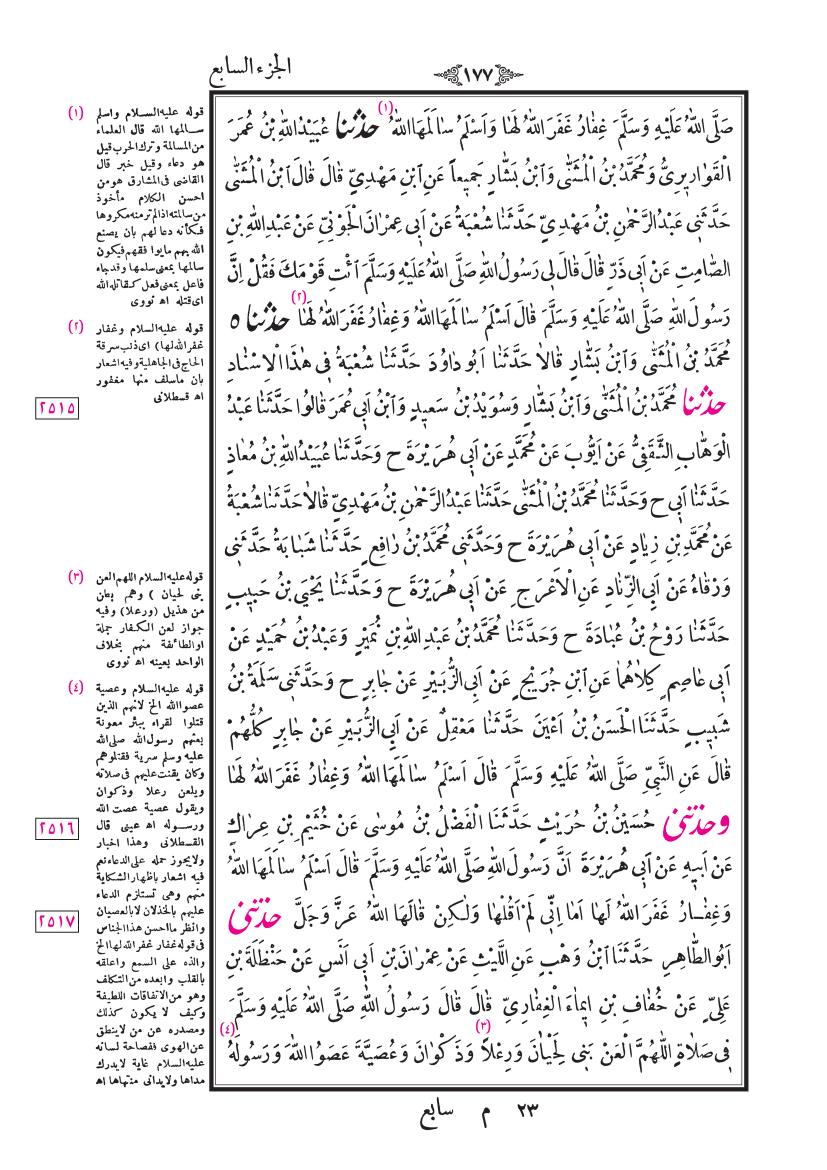 الجزء السابع
١٧٧
صَلَّى اللّٰهُ عَلَيْهِ وَسَلَّمَ غِفَارُ غَفَرَ اللّٰهُ لَهَا وَاَسْلَمُ سَالَمَهَا اللّٰهُ (١) حَدَّثَنَا عُبَيْدُ اللّٰهِ بْنُ عُمَرَ
الْقَوَارِيرِىُّ وَمُحَمَّدُ بْنُ الْمُثَنَّى وَابْنُ بَشَّارٍ جَمِيعاً عَنِ ابْنِ مَهْدِيٍّ قَالَ قَالَ ابْنُ الْمُثَنَّى
حَدَّثَنِى عَبْدُ الرَّحْمٰنِ بْنُ مَهْدِيٍّ حَدَّثَنَا شُعْبَةُ عَنْ اَبِى عِمْرَانَ الْجَوْنِيِّ عَنْ عَبْدِ اللّٰهِ بْنِ
الصَّامِتِ عَنْ اَبِى ذَرٍّ قَالَ قَالَ لِى رَسُولُ اللّٰهِ صَلَّى اللّٰهُ عَلَيْهِ وَسَلَّمَ اَئْتِ قَوْمَكَ فَقُلْ اِنَّ
رَسُولَ اللّٰهِ صَلَّى اللّٰهُ عَلَيْهِ وَسَلَّمَ قَالَ اَسْلَمُ سَالَمَهَا اللّٰهُ وَغِفَارُ غَفَرَ اللّٰهُ لَهَا (٢) حَدَّثَنَا ٥
مُحَمَّدُ بْنُ الْمُثَنَّى وَابْنُ بَشَّارٍ قَالَا حَدَّثَنَا اَبُو دَاوُدَ حَدَّثَنَا شُعْبَةُ فِى هٰذَا الْاِسْنَادِ
حَدَّثَنَا مُحَمَّدُ بْنُ الْمُثَنَّى وَابْنُ بَشَّارٍ وَسُوَيْدُ بْنُ سَعِيدٍ وَابْنُ اَبِى عُمَرَ قَالُوا حَدَّثَنَا عَبْدُ
الْوَهَّابِ الثَّقَفِىُّ عَنْ اَيُّوبَ عَنْ مُحَمَّدٍ عَنْ اَبِى هُرَيْرَةَ ح وَحَدَّثَنَا عُبَيْدُ اللّٰهِ بْنُ مُعَاذٍ
حَدَّثَنَا اَبِى ح وَحَدَّثَنَا مُحَمَّدُ بْنُ الْمُثَنَّى حَدَّثَنَا عَبْدُ الرَّحْمٰنِ بْنُ مَهْدِيٍّ قَالَا حَدَّثَنَا شُعْبَةُ
عَنْ مُحَمَّدِ بْنِ زِيَادٍ عَنْ اَبِى هُرَيْرَةَ ح وَحَدَّثَنِى مُحَمَّدُ بْنُ رَافِعٍ حَدَّثَنَا شَبَابَةُ حَدَّثَنِى
وَرْقَاءُ عَنْ اَبِى الزِّنَادِ عَنِ الْاَعْرَجِ عَنْ اَبِى هُرَيْرَةَ ح وَحَدَّثَنَا يَحْيَى بْنُ حَبِيبٍ
حَدَّثَنَا رَوْحُ بْنُ عُبَادَةَ ح وَحَدَّثَنَا مُحَمَّدُ بْنُ عَبْدِ اللّٰهِ بْنِ نُمَيْرٍ وَعَبْدُ بْنُ حُمَيْدٍ عَنْ
اَبِى عَاصِمٍ كِلَاهُمَا عَنِ ابْنِ جُرَيْجٍ عَنْ اَبِى الزُّبَيْرِ عَنْ جَابِرٍ ح وَحَدَّثَنِى سَلَمَةُ بْنُ
شَبِيبٍ حَدَّثَنَا الْحَسَنُ بْنُ اَعْيَنَ حَدَّثَنَا مَعْقِلٌ عَنْ اَبِى الزُّبَيْرِ عَنْ جَابِرٍ كُلُّهُمْ
قَالَ عَنِ النَّبِيِّ صَلَّى اللّٰهُ عَلَيْهِ وَسَلَّمَ قَالَ اَسْلَمُ سَالَمَهَا اللّٰهُ وَغِفَارُ غَفَرَ اللّٰهُ لَهَا
وَحَدَّثَنِى حُسَيْنُ بْنُ حُرَيْثٍ حَدَّثَنَا الْفَضْلُ بْنُ مُوسَى عَنْ خُثَيْمِ بْنِ عِرَاكٍ
عَنْ اَبِيهِ عَنْ اَبِى هُرَيْرَةَ اَنَّ رَسُولَ اللّٰهِ صَلَّى اللّٰهُ عَلَيْهِ وَسَلَّمَ قَالَ اَسْلَمُ سَالَمَهَا اللّٰهُ
وَغِفَارُ غَفَرَ اللّٰهُ لَهَا اَمَا اِنِّى لَمْ اَقُلْهَا وَلٰكِنْ قَالَهَا اللّٰهُ عَزَّ وَجَلَّ حَدَّثَنِى
اَبُو الطَّاهِرِ حَدَّثَنَا ابْنُ وَهْبٍ عَنِ اللَّيْثِ عَنْ عِمْرَانَ بْنِ اَبِى اَنَسٍ عَنْ حَنْظَلَةَ بْنِ
عَلِيٍّ عَنْ خُفَافِ بْنِ اِيمَاءَ الْغِفَارِيِّ قَالَ قَالَ رَسُولُ اللّٰهِ صَلَّى اللّٰهُ عَلَيْهِ وَسَلَّمَ
فِى صَلَاةٍ اَللّٰهُمَّ الْعَنْ بَنِى لِحْيَانَ وَرِعْلاً (٣) وَذَكْوَانَ وَعُصَيَّةَ عَصَوُا اللّٰهَ وَرَسُولَهُ (٤)
(١) قوله عليه السلام واسلم
سالمها الله قال العلماء
من المسالمة وترك الحرب قيل
هو دعاء وقيل خبر قال
القاضى فى المشارق هو من
احسن الكلام مأخوذ
من سالمته اذا لم ترمنه مكروها
فكأنه دعا لهم بان يصنع
الله بهم ما يوافقهم فيكون
سالمها بمعنى سلمها وقد جاء
فاعل بمعنى فعل كقاتله الله
اى قتله اه نووى
(٢) قوله عليه السلام وغفار
غفر الله لها) اى ذنب سرقة
الحاج فى الجاهلية وفيه اشعار
بان ماسلف منها مغفور
اه قسطلانى
٢٥١٥
(٣) قوله عليه السلام اللهم العن
بنى لحيان) وهم بطن
من هذيل (ورعلا) وفيه
جواز لعن الكفار جملة
اوالطائفة منهم بخلاف
الواحد بعينه اه نووى
(٤) قوله عليه السلام وعصية
عصوا الله الخ لانهم الذين
قتلوا القراء ببئر معونة
بعثهم رسول الله صلى الله
عليه وسلم سرية فقتلوهم
وكان يقنت عليهم فى صلاته
ويلعن رعلا وذكوان
ويقول عصية عصت الله
ورسوله اه عينى قال
القسطلانى وهذا اخبار
ولايجوز حمله على الدعاء نعم
فيه اشعار باظهار الشكاية
منهم وهى تستلزم الدعاء
عليهم بالخذلان لا بالعصيان
وانظر ما احسن هذا الجناس
فى قوله غفار غفر الله لها الخ
والذه على السمع واعلقه
بالقلب وابعده من التكلف
وهو من الاتفاقات اللطيفة
وكيف لا يكون كذلك
ومصدره عن من لاينطق
عن الهوى ففصاحة لسانه
عليه السلام غاية لايدرك
مداها ولايدانى منتهاها اه
٢٥١٦
٢٥١٧
٢٣ م سابع